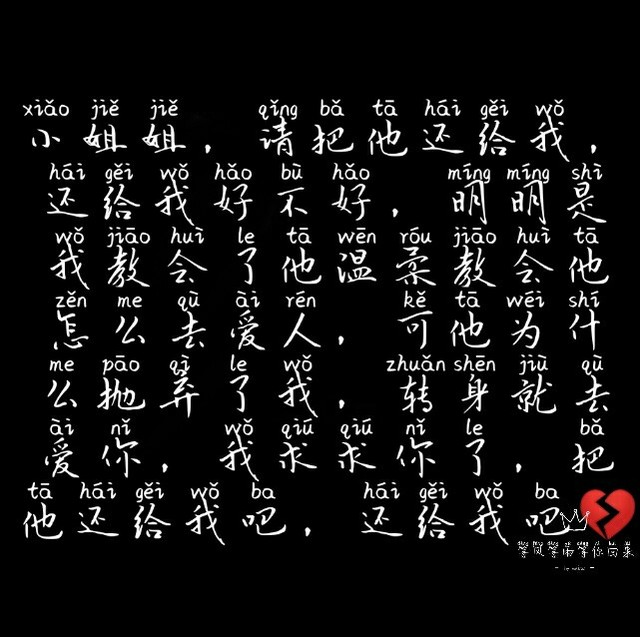 xiǎo jiě jiě qǐng bǎ tā hái gěi wǒ
小姐姐，请把他还给我，
hái gěi wǒ hǎo bù hǎo míng míng shì
还给我好不好，明明是
wǒ jiāo huì le tā wēn róu jiāo huì tā
我教会了他温柔教会他
zěn me qù ài rén kě tā wéi shí
怎么去爱人，可他为什
me pāo qì le wǒ zhuǎn shēn jiù qù
么抛弃了我，转身就去
ài nǐ wǒ qiú qiú nǐ le bǎ
爱你，我求求你了，把
tā hái gěi wǒ ba hái gěi wǒ ba
他还给我吧，还给我吧